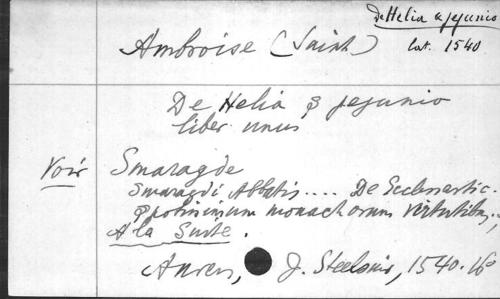 De Helia & jejunio
lat. 1540
Ambroise (Saint)
De Helia & jejunio
liber unus
Voir Smaragde
Smaragdi Abbatis.... De Ecclesiastic.
monachorum virtutibus,
A la Suite.
Anvers, J. Steelsius, 1540. 16º